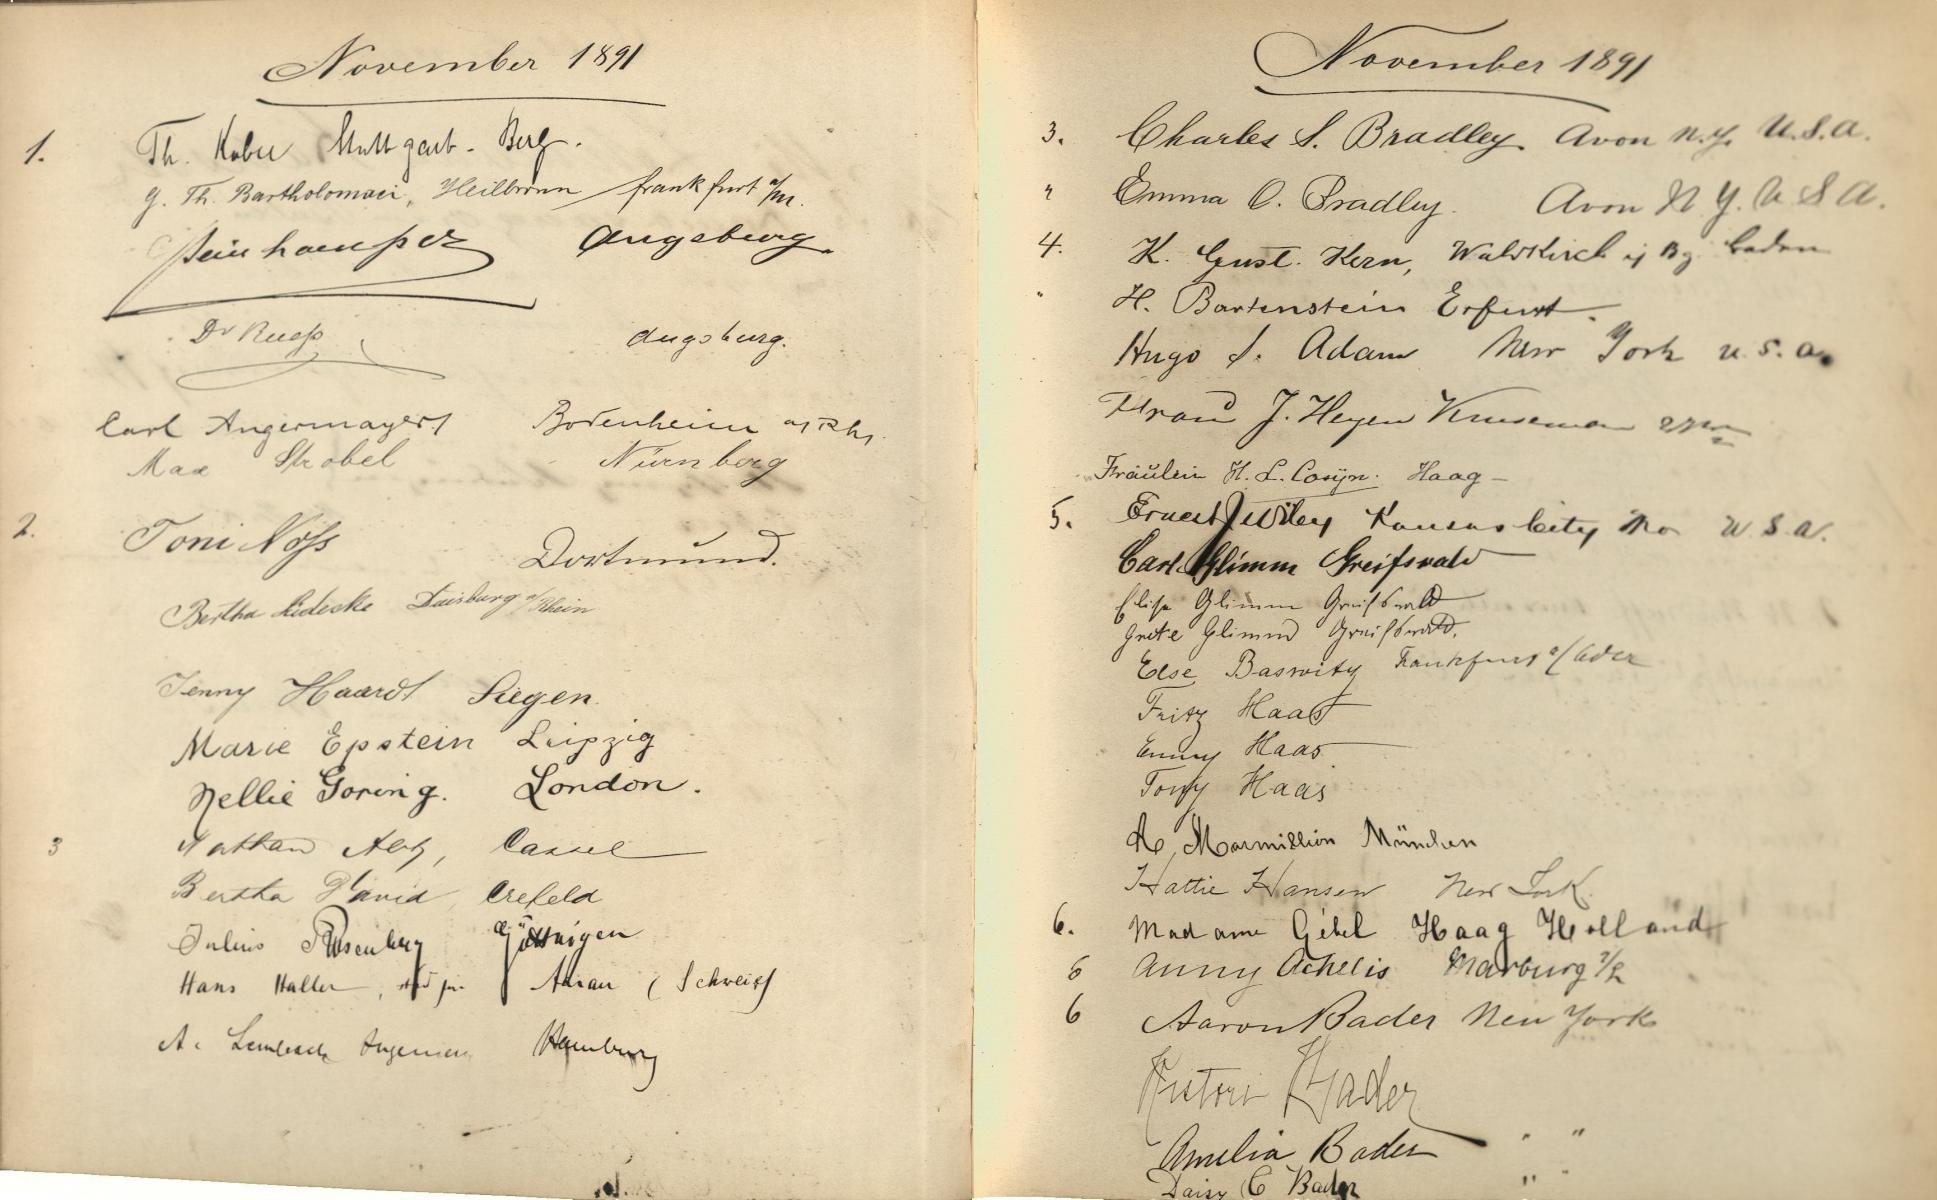 November 1891
1. Th. Stuttgart. Berg.
G. Th. Bartholomaei, Heilbronn frankfurt a/m.
Augsburg.
Dr Ruess Augsburg.
Carl Angermayer Bodenheim a/Rh.
Max Strobel Nürnberg
2. Toni Noss Dortmund.
Bertha Lidecke Duisburg a/Rhein
Jenny Haardt Siegen.
Marie Epstein Leipzig
Nellie Goring. London.
3 Nathan Cassel
Bertha David, Crefeld
Julius Rosenberg Göttingen
Hans Haller, Aarau (Schweiz)
A. Ingenieur Hamburg
November 1891
3. Charles S. Bradley. Avon N.Y. U.S.A.
" Emma O. Bradley. Avon N.Y. U S A.
4. K. Gust. Kern, Waldkirch Baden
" H. Bartenstein Erfurt.
Hugo S. Adam New York U.S.A.
J. Heyen Kruseman
Fräulein H. L. Cosÿn. Haag -
5. Ernest J Wiley Kansas City Mo U.S.A.
Carl Glimm Greifswald
Elise Glimm Greifswald
Grete Glimm Greifswald.
Else Baswitz Frankfurt a/Oder
Fritz Haas
Emmy Haas
Tony Haas
A. Marmillion München
Hattie Hansen New York.
6. Madame Haag Holland
6 Anny Achelis Marburg
6 Aaron Bader New York
Bader
Amelia Bader " "
Daisy C Bader " "